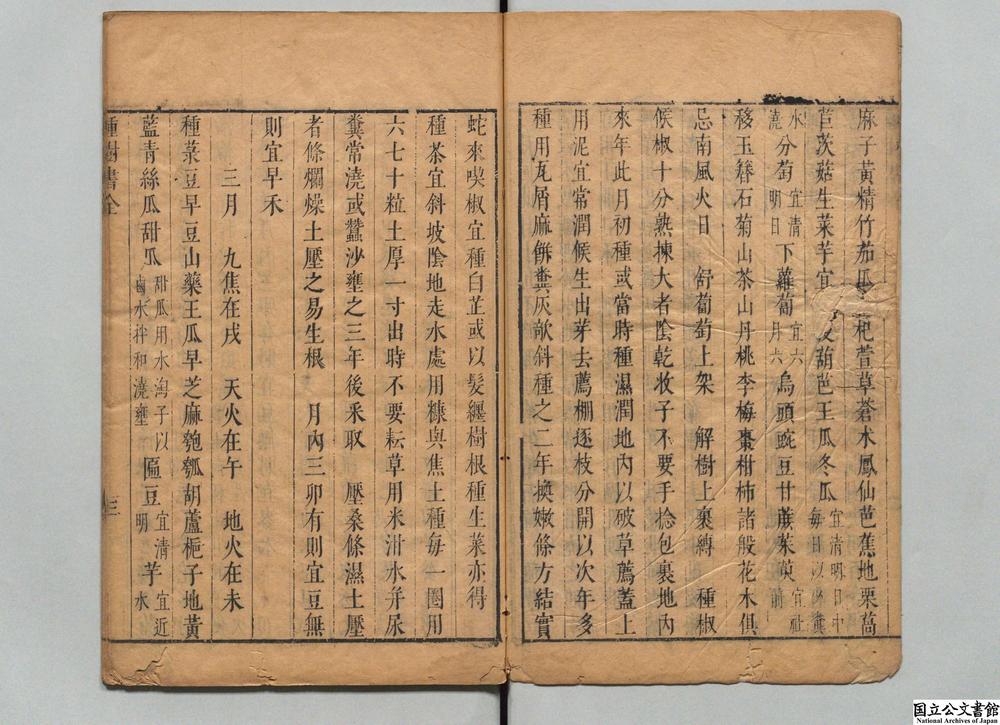 麻子黃精竹茄瓜 杞萱草蒼术鳳仙芭蕉地栗萵
苣茨菇生菜芋宜 葫芭王瓜冬瓜宜清明日中
每日以 糞
水宜清
澆分蔔明日下蘿蔔宜六
月六烏頭豌豆甘蔗茱萸宜社
前
移玉簪石菊山茶山丹桃李梅棗柑柿諸般花木俱
忌南風火日 舒萄萄上架 解樹上裹縛 種椒
候椒十分熟揀大者陰乾收子不要手捻包裹地內
來年此月初種或當時種濕潤地內以破草薦蓋上
用泥宜常潤候生出芽去薦棚逐枝分開以次年多
種用瓦屑麻餅糞灰欹斜種之二年換嫩條方結實
蛇來喫椒宜種白芷或以髮纏樹根種生菜亦得
種茶宜斜坡陰地走水處用糠與焦土種每一圈用
六七十粒土厚一寸出時不要耘草用米泔水并尿
糞常澆或蠶沙壅之三年後釆取 壓桑條濕土壓
者條爛燥土壓之易生根 月內三卯有則宜豆無
則宜早禾
三月 九焦在戌 天火在午 地火在未
種菉豆早豆山藥王瓜早芝麻匏瓠胡蘆梔子地黃
藍青絲瓜甜瓜甜瓜用水淘子以
鹵水拌和澆壅匾豆宜清
明芋宜近
水
種樹書全
三
国立公文書館
National Archives of Japan